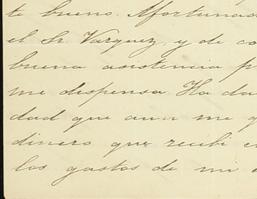 te bueno. Afortunada
el Sr. Vazquez, y de co
buena asistencia p
me dispensa. Ha da
dad que aun me q
dinero que recibi e
los gastos de mi e